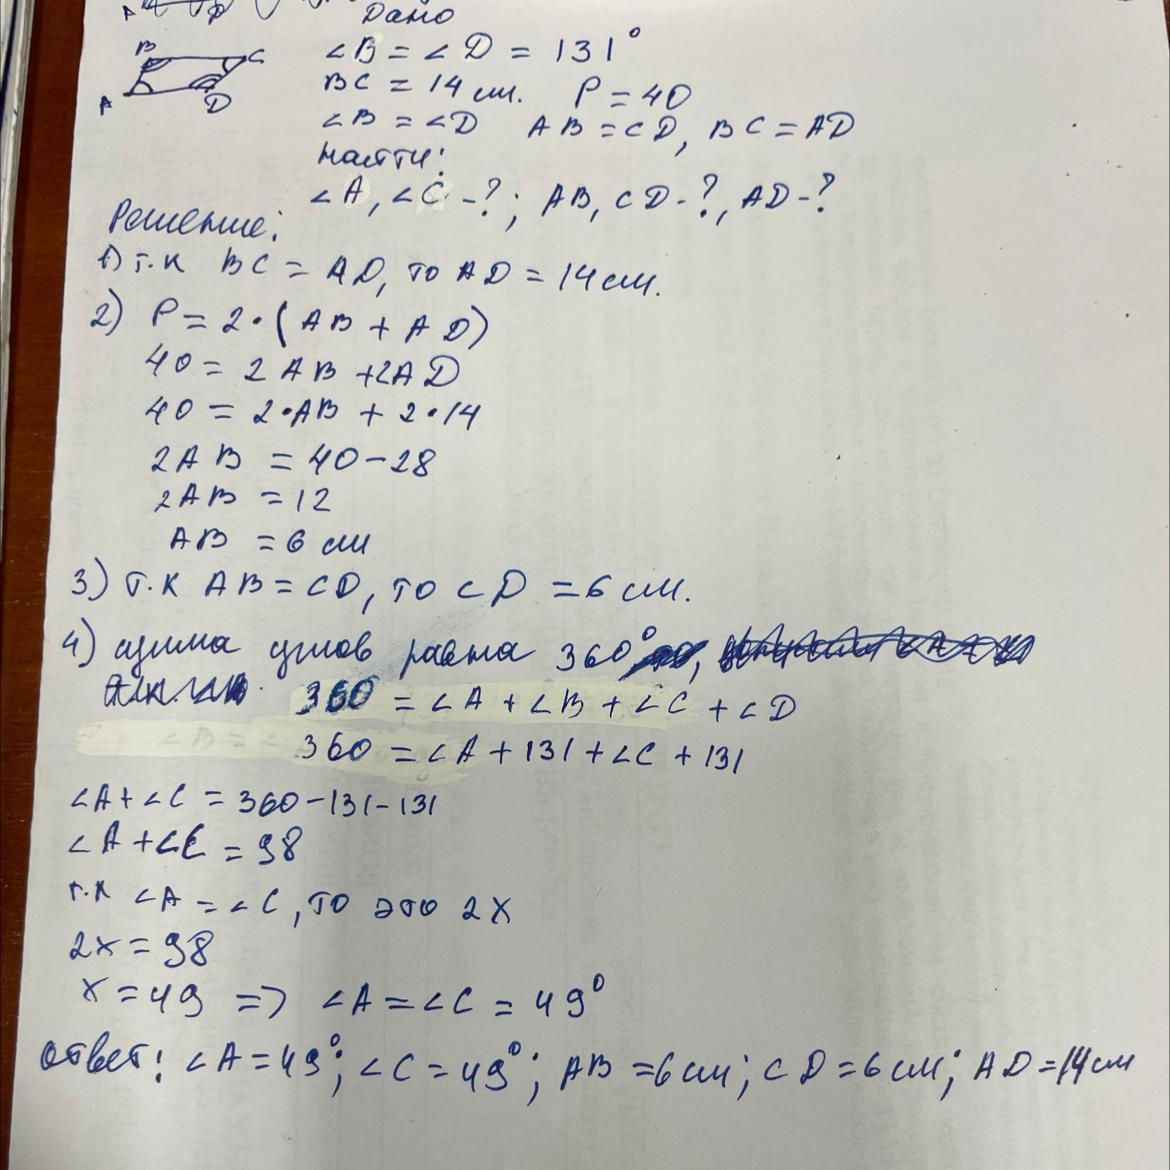 Дано
B C
A D
∠B = ∠D = 131°
BC = 14 см. P = 40
∠B = ∠D AB = CD, BC = AD
Найти:
∠A, ∠C -?; AB, CD-?, AD-?
Решение:
1) т.к BC = AD, то AD = 14 см.
2) P = 2·(AB + AD)
40 = 2AB + 2AD
40 = 2·AB + 2·14
2AB = 40-28
2AB = 12
AB = 6 см
3) т.к AB = CD, то CD = 6 см.
4) сумма углов равна 360°
360 = ∠A + ∠B + ∠C + ∠D
360 = ∠A + 131 + ∠C + 131
∠A + ∠C = 360-131-131
∠A + ∠C = 98
т.к ∠A = ∠C, то это 2x
2x = 98
x = 49 => ∠A = ∠C = 49°
ответ: ∠A = 49°; ∠C = 49°; AB = 6 см; CD = 6 см; AD = 14 см